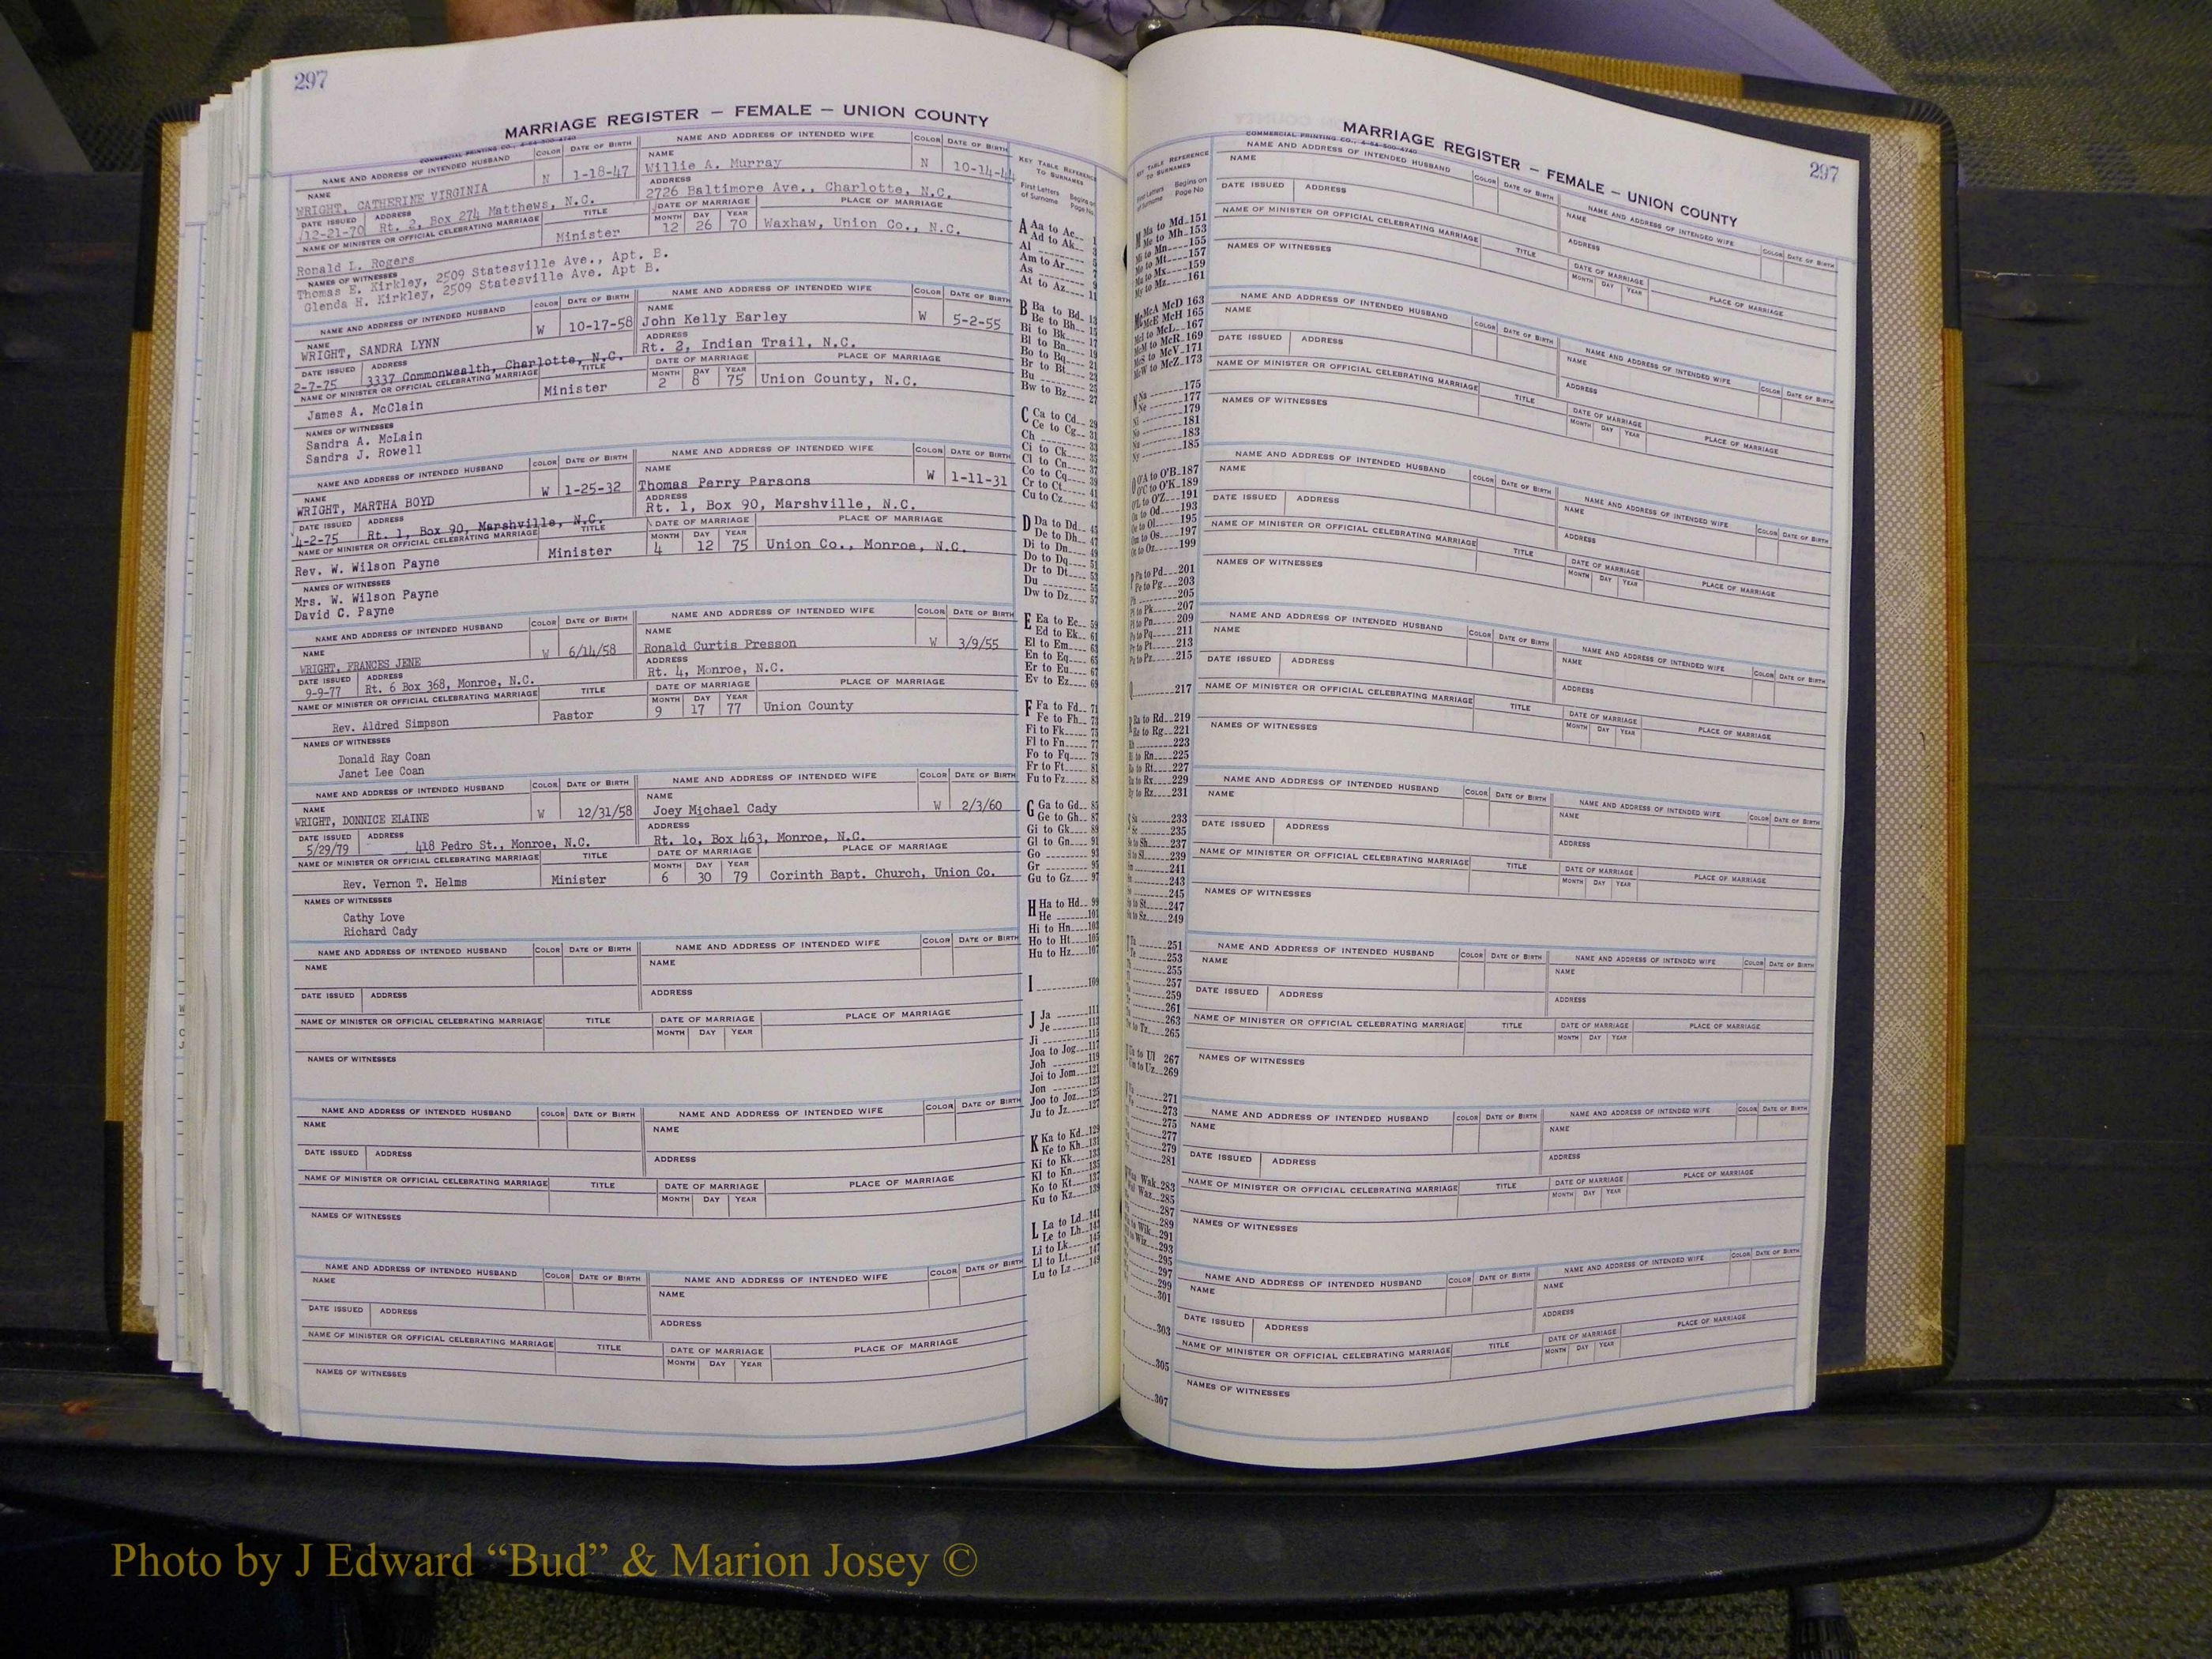 297
MARRIAGE REGISTER — FEMALE — UNION COUNTY
COMMERCIAL PRINTING CO., 4-64-500-4740
NAME AND ADDRESS OF INTENDED HUSBAND COLOR DATE OF BIRTH NAME AND ADDRESS OF INTENDED WIFE COLOR DATE OF BIRTH
NAME WRIGHT, CATHERINE VIRGINIA N 1-18-47 NAME Willie A. Murray N 10-14-44
DATE ISSUED 12-21-70 ADDRESS Rt. 2, Box 274 Matthews, N.C. ADDRESS 2726 Baltimore Ave., Charlotte, N.C.
NAME OF MINISTER OR OFFICIAL CELEBRATING MARRIAGE TITLE DATE OF MARRIAGE PLACE OF MARRIAGE
Ronald L. Rogers Minister MONTH 12 DAY 26 YEAR 70 Waxhaw, Union Co., N.C.
NAMES OF WITNESSES
Thomas E. Kirkley, 2509 Statesville Ave., Apt. B.
Glenda H. Kirkley, 2509 Statesville Ave. Apt B.
NAME AND ADDRESS OF INTENDED HUSBAND COLOR DATE OF BIRTH NAME AND ADDRESS OF INTENDED WIFE COLOR DATE OF BIRTH
NAME WRIGHT, SANDRA LYNN W 10-17-58 NAME John Kelly Earley W 5-2-55
DATE ISSUED 2-7-75 ADDRESS 3337 Commonwealth, Charlotte, N.C. ADDRESS Rt. 2, Indian Trail, N.C.
NAME OF MINISTER OR OFFICIAL CELEBRATING MARRIAGE TITLE DATE OF MARRIAGE PLACE OF MARRIAGE
James A. McClain Minister MONTH 2 DAY 8 YEAR 75 Union County, N.C.
NAMES OF WITNESSES
Sandra A. McLain
Sandra J. Rowell
NAME AND ADDRESS OF INTENDED HUSBAND COLOR DATE OF BIRTH NAME AND ADDRESS OF INTENDED WIFE COLOR DATE OF BIRTH
NAME WRIGHT, MARTHA BOYD W 1-25-32 NAME Thomas Perry Parsons W 1-11-31
DATE ISSUED 4-2-75 ADDRESS Rt. 1, Box 90, Marshville, N.C. ADDRESS Rt. 1, Box 90, Marshville, N.C.
NAME OF MINISTER OR OFFICIAL CELEBRATING MARRIAGE TITLE DATE OF MARRIAGE PLACE OF MARRIAGE
Rev. W. Wilson Payne Minister MONTH 4 DAY 12 YEAR 75 Union Co., Monroe, N.C.
NAMES OF WITNESSES
Mrs. W. Wilson Payne
David C. Payne
NAME AND ADDRESS OF INTENDED HUSBAND COLOR DATE OF BIRTH NAME AND ADDRESS OF INTENDED WIFE COLOR DATE OF BIRTH
NAME WRIGHT, FRANCES JENE W 6/14/58 NAME Ronald Curtis Presson W 3/9/55
DATE ISSUED 9-9-77 ADDRESS Rt. 6 Box 368, Monroe, N.C. ADDRESS Rt. 4, Monroe, N.C.
NAME OF MINISTER OR OFFICIAL CELEBRATING MARRIAGE TITLE DATE OF MARRIAGE PLACE OF MARRIAGE
Rev. Aldred Simpson Pastor MONTH 9 DAY 17 YEAR 77 Union County
NAMES OF WITNESSES
Donald Ray Coan
Janet Lee Coan
NAME AND ADDRESS OF INTENDED HUSBAND COLOR DATE OF BIRTH NAME AND ADDRESS OF INTENDED WIFE COLOR DATE OF BIRTH
NAME WRIGHT, DONNICE ELAINE W 12/31/58 NAME Joey Michael Cady W 2/3/60
DATE ISSUED 5/29/79 ADDRESS 418 Pedro St., Monroe, N.C. ADDRESS Rt. lo, Box 463, Monroe, N.C.
NAME OF MINISTER OR OFFICIAL CELEBRATING MARRIAGE TITLE DATE OF MARRIAGE PLACE OF MARRIAGE
Rev. Vernon T. Helms Minister MONTH 6 DAY 30 YEAR 79 Corinth Bapt. Church, Union Co.
NAMES OF WITNESSES
Cathy Love
Richard Cady
NAME AND ADDRESS OF INTENDED HUSBAND COLOR DATE OF BIRTH NAME AND ADDRESS OF INTENDED WIFE COLOR DATE OF BIRTH
NAME NAME
DATE ISSUED ADDRESS ADDRESS
NAME OF MINISTER OR OFFICIAL CELEBRATING MARRIAGE TITLE DATE OF MARRIAGE PLACE OF MARRIAGE
MONTH DAY YEAR
NAMES OF WITNESSES
NAME AND ADDRESS OF INTENDED HUSBAND COLOR DATE OF BIRTH NAME AND ADDRESS OF INTENDED WIFE COLOR DATE OF BIRTH
NAME NAME
DATE ISSUED ADDRESS ADDRESS
NAME OF MINISTER OR OFFICIAL CELEBRATING MARRIAGE TITLE DATE OF MARRIAGE PLACE OF MARRIAGE
MONTH DAY YEAR
NAMES OF WITNESSES
NAME AND ADDRESS OF INTENDED HUSBAND COLOR DATE OF BIRTH NAME AND ADDRESS OF INTENDED WIFE COLOR DATE OF BIRTH
NAME NAME
DATE ISSUED ADDRESS ADDRESS
NAME OF MINISTER OR OFFICIAL CELEBRATING MARRIAGE TITLE DATE OF MARRIAGE PLACE OF MARRIAGE
MONTH DAY YEAR
NAMES OF WITNESSES
KEY TABLE REFERENCE
TO SURNAMES
First Letters of Surname Begins on Page No.
A Aa to Ac
Ad to Ak
Al
Am to Ar
As
At to Az 11
B Ba to Bd 13
Be to Bh 15
Bi to Bk 17
Bl to Bn 19
Bo to Bq 21
Br to Bt 23
Bu 25
Bw to Bz 27
C Ca to Cd 29
Ce to Cg 31
Ch 33
Ci to Ck 35
Cl to Cn 37
Co to Cq 39
Cr to Ct 41
Cu to Cz 43
D Da to Dd 45
De to Dh 47
Di to Dn 49
Do to Dq 51
Dr to Dt 53
Du 55
Dw to Dz 57
E Ea to Ec 59
Ed to Ek 61
El to Em 63
En to Eq 65
Er to Eu 67
Ev to Ez 69
F Fa to Fd 71
Fe to Fh 73
Fi to Fk 75
Fl to Fn 77
Fo to Fq 79
Fr to Ft 81
Fu to Fz 83
G Ga to Gd 85
Ge to Gh 87
Gi to Gk 89
Gl to Gn 91
Go 93
Gr 95
Gu to Gz 97
H Ha to Hd 99
He 101
Hi to Hn 103
Ho to Ht 105
Hu to Hz 107
I 109
J Ja 111
Je 113
Ji 115
Joa to Jog 117
Joh 119
Joi to Jom 121
Jon 123
Joo to Joz 125
Ju to Jz 127
K Ka to Kd 129
Ke to Kh 131
Ki to Kk 133
Kl to Kn 135
Ko to Kt 137
Ku to Kz 139
L La to Ld 141
Le to Lh 143
Li to Lk 145
Ll to Lt 147
Lu to Lz 149
297
MARRIAGE REGISTER — FEMALE — UNION COUNTY
COMMERCIAL PRINTING CO., 4-64-500-4740
TABLE REFERENCE
TO SURNAMES
Begins on Page No
Ma to Md 151
Me to Mh 153
Mi to Mn 155
Mo to Mt 157
Mu to Mx 159
My to Mz 161
McA McD 163
McE McH 165
McI to McL 167
McM to McR 169
McS to McV 171
McW to McZ 173
Na 175
Ne 177
Ni 179
No 181
Nu 183
Ny 185
O'A to O'B 187
O'C to O'K 189
O'L to O'Z 191
Oa to Od 193
Oe to Ol 195
Om to Os 197
Ot to Oz 199
Pa to Pd 201
Pe to Pg 203
Ph 205
Pi to Pk 207
Pl to Pn 209
Po to Pq 211
Pr to Pt 213
Pu to Pz 215
Q 217
Ra to Rd 219
Re to Rg 221
Rh 223
Ri to Rn 225
Ro to Rt 227
Ru to Rx 229
Ry to Rz 231
Sa 233
Se 235
to Sh 237
Si to Sl 239
241
243
245
to St 247
Su to Sz 249
Ta 251
Te 253
255
257
259
261
263
to Tz 265
Ua to Ul 267
Um to Uz 269
271
273
275
277
279
281
Waa Wak 283
Wal Waz 285
287
289
to Wik 291
to Wiz 293
295
297
299
301
303
305
307
NAME AND ADDRESS OF INTENDED HUSBAND COLOR DATE OF BIRTH NAME AND ADDRESS OF INTENDED WIFE COLOR DATE OF BIRTH
NAME NAME
DATE ISSUED ADDRESS ADDRESS
NAME OF MINISTER OR OFFICIAL CELEBRATING MARRIAGE TITLE DATE OF MARRIAGE PLACE OF MARRIAGE
MONTH DAY YEAR
NAMES OF WITNESSES
NAME AND ADDRESS OF INTENDED HUSBAND COLOR DATE OF BIRTH NAME AND ADDRESS OF INTENDED WIFE COLOR DATE OF BIRTH
NAME NAME
DATE ISSUED ADDRESS ADDRESS
NAME OF MINISTER OR OFFICIAL CELEBRATING MARRIAGE TITLE DATE OF MARRIAGE PLACE OF MARRIAGE
MONTH DAY YEAR
NAMES OF WITNESSES
NAME AND ADDRESS OF INTENDED HUSBAND COLOR DATE OF BIRTH NAME AND ADDRESS OF INTENDED WIFE COLOR DATE OF BIRTH
NAME NAME
DATE ISSUED ADDRESS ADDRESS
NAME OF MINISTER OR OFFICIAL CELEBRATING MARRIAGE TITLE DATE OF MARRIAGE PLACE OF MARRIAGE
MONTH DAY YEAR
NAMES OF WITNESSES
NAME AND ADDRESS OF INTENDED HUSBAND COLOR DATE OF BIRTH NAME AND ADDRESS OF INTENDED WIFE COLOR DATE OF BIRTH
NAME NAME
DATE ISSUED ADDRESS ADDRESS
NAME OF MINISTER OR OFFICIAL CELEBRATING MARRIAGE TITLE DATE OF MARRIAGE PLACE OF MARRIAGE
MONTH DAY YEAR
NAMES OF WITNESSES
NAME AND ADDRESS OF INTENDED HUSBAND COLOR DATE OF BIRTH NAME AND ADDRESS OF INTENDED WIFE COLOR DATE OF BIRTH
NAME NAME
DATE ISSUED ADDRESS ADDRESS
NAME OF MINISTER OR OFFICIAL CELEBRATING MARRIAGE TITLE DATE OF MARRIAGE PLACE OF MARRIAGE
MONTH DAY YEAR
NAMES OF WITNESSES
NAME AND ADDRESS OF INTENDED HUSBAND COLOR DATE OF BIRTH NAME AND ADDRESS OF INTENDED WIFE COLOR DATE OF BIRTH
NAME NAME
DATE ISSUED ADDRESS ADDRESS
NAME OF MINISTER OR OFFICIAL CELEBRATING MARRIAGE TITLE DATE OF MARRIAGE PLACE OF MARRIAGE
MONTH DAY YEAR
NAMES OF WITNESSES
NAME AND ADDRESS OF INTENDED HUSBAND COLOR DATE OF BIRTH NAME AND ADDRESS OF INTENDED WIFE COLOR DATE OF BIRTH
NAME NAME
DATE ISSUED ADDRESS ADDRESS
NAME OF MINISTER OR OFFICIAL CELEBRATING MARRIAGE TITLE DATE OF MARRIAGE PLACE OF MARRIAGE
MONTH DAY YEAR
NAMES OF WITNESSES
NAME AND ADDRESS OF INTENDED HUSBAND COLOR DATE OF BIRTH NAME AND ADDRESS OF INTENDED WIFE COLOR DATE OF BIRTH
NAME NAME
DATE ISSUED ADDRESS ADDRESS
NAME OF MINISTER OR OFFICIAL CELEBRATING MARRIAGE TITLE DATE OF MARRIAGE PLACE OF MARRIAGE
MONTH DAY YEAR
NAMES OF WITNESSES
Photo by J Edward “Bud” & Marion Josey ©